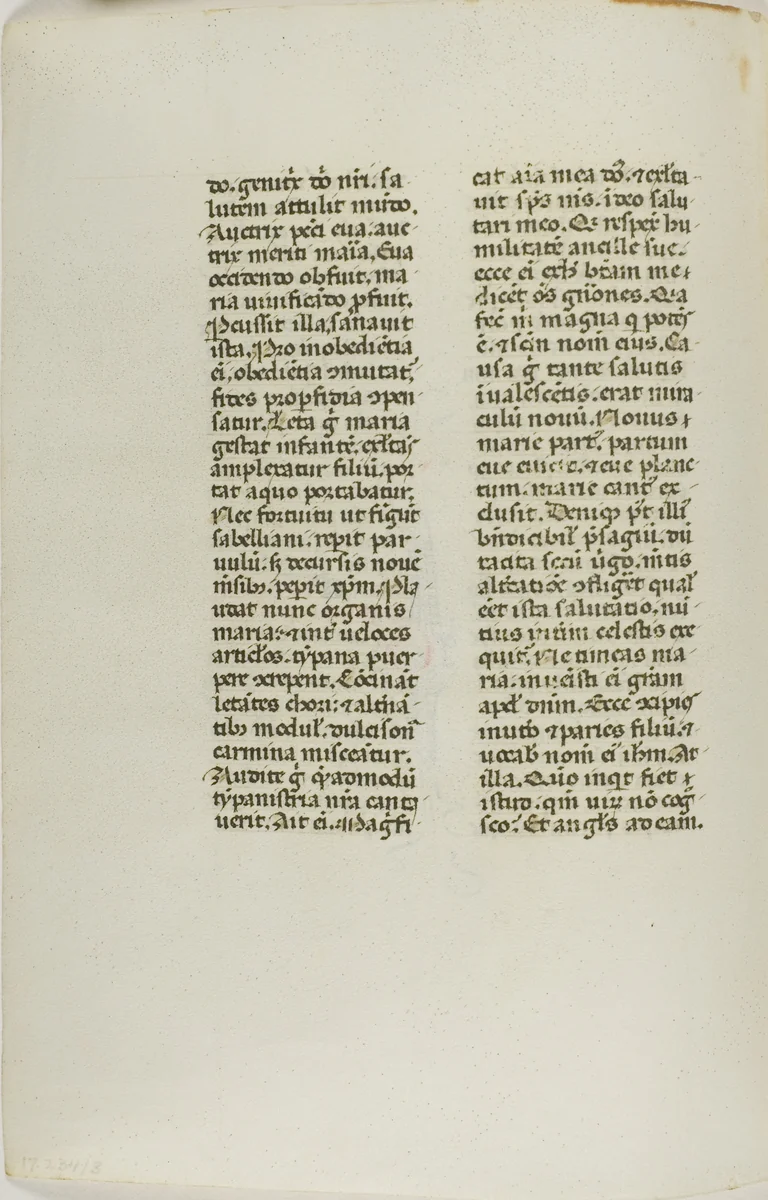 do. genitͥx dō nr̄i. sa
lutem attulit mūdo.
Auctrix pecī eua. auc
trix meriti maīa. Eua
occidendo obfuit. ma
ria uiuificādo ꝓfuit.
Pcussit illa, sanauit
ista. Pro inobediētia
ei, obediētia ꝯmutat᷑,
fides pro ꝑfidia ꝯpen
satur. Leta g̊ maria
gestat infantē. exl̄tās
amplexatur filiū. por
tat a quo portabatur.
Nec fortuitu ut fīgūt
sabelliani. reꝑit par
uulū. sꝫ decursis nouē
m̄sibꝫ. peꝑit xp̄m. Pla
udat nunc organis
maria. ⁊ int̄ ueloces
articl̄os. tẏpana puer
pere ꝯcrepent. Cōcināt
letātes chori: ⁊ alt̄nā
tibꝫ modul̄. dulcison̄
carmina misceātur.
Audite g̊ qͥ̄admodū
tẏpanistria nr̄a canta
uerit. Ait ei. Magͥfi
cat aīa mea do᷒. ⁊ exl̄ta
uit sp̄s m̄s. ī deo salu
tari meo. Qꝫ respex̄ hu
militatē ancille sue.
ecce ei exh̄ btām me
dicēt os̄ gn̄ōnes. Qꝛa
fec̄ m̄ magna q̇ potēs
ē. ⁊ sc̄m nom̄ eius. Ca
usa g̊ tante salutis
īualescētis. erat mira
culū nouū. Nouus
marie part᷒. partum
eue euicit. ⁊ eue planc
tum. marie cant᷒ ex
clusit. Deniqꝫ p̄t illī
bn̄dicibil̄ p̄sagiū. dū
tacita secū ūgo. m̄tis
alt̄catiōe ꝯfligeret qual̄
eēt ista salutatio. nū
tius int̄im celestis exe
quit᷑. Ne timeas ma
ria. inuēisti ei grām
apd̄ dnm̄. Ecce ꝯcipies
in ut̄o ⁊ paries filiū. ⁊
uocab̄ nom̄ ei ih̄m. At
illa. Quō inqͥt fiet
istud. qm̄ uiꝝ nō cog̊
sco? Et angl̄s ad eam.